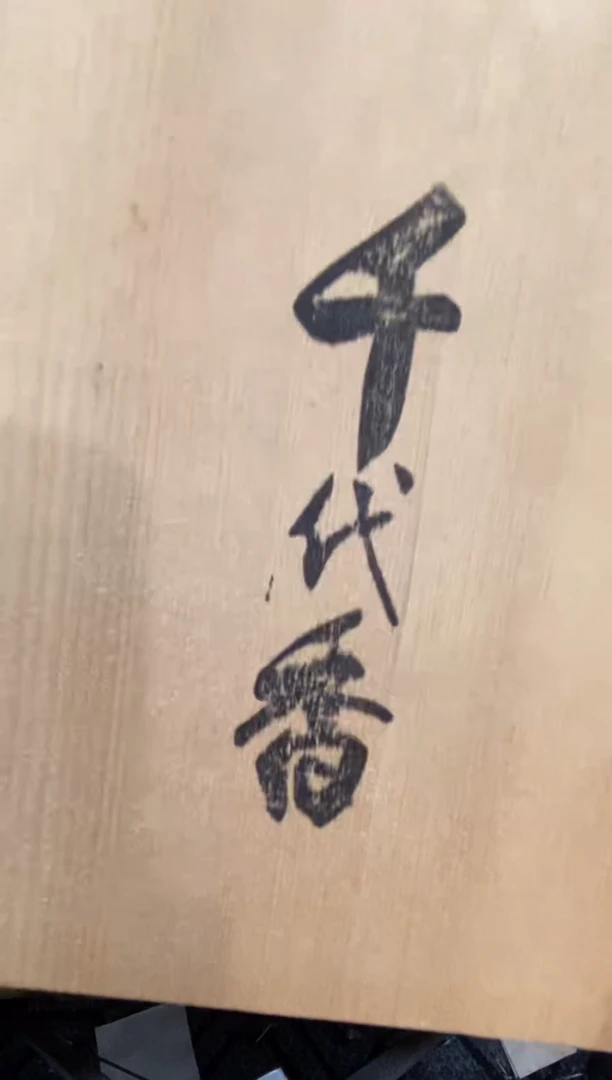 千代香